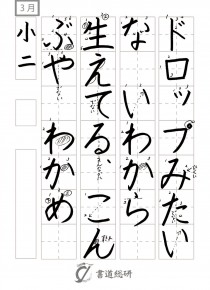 3月
ドロップみたい
な いわから
生えてる、こん
ぶや わかめ
小二
書道総研